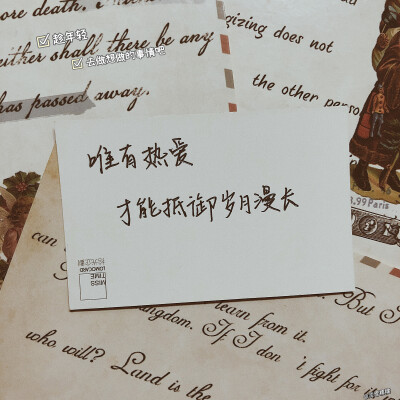 ore death,
either shall there be any
has passed away.
gizing does not
the other perso
趁年轻
去做想做的事情吧
唯有热爱
才能抵御岁月漫长
MISS
TIME
LOMOCARD
.99 Paris
can
But I
learn from it.
ngdom. If I
who will? Land is the
don't fight for